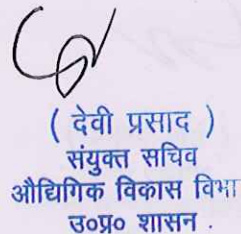 ( देवी प्रसाद )
संयुक्त सचिव
औद्यिगिक विकास विभा
उ०प्र० शासन .